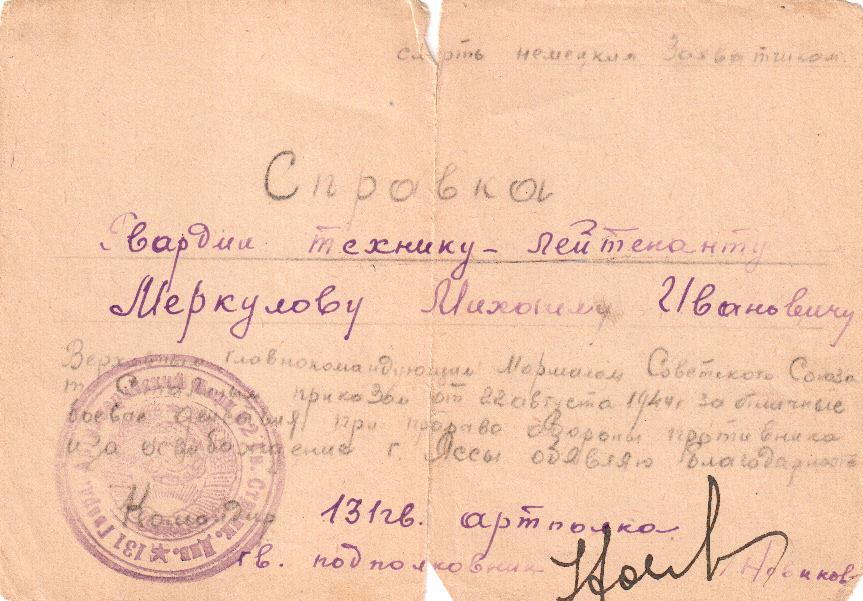 смерть немецким Захватчикам.
Справка
Гвардии технику-лейтенанту
Меркулову Михаилу Ивановичу
Верховный главнокомандующий Маршалом Советского Союза
т Сталиным приказом от 22 августа 1944 г за отличные
боевые действия при прорыве обороны противника
и за освобождение г. Яссы объявляю благодарность
Командир 131гв. артполка
гв. подполковник Новиков
★ 131 Гвард.